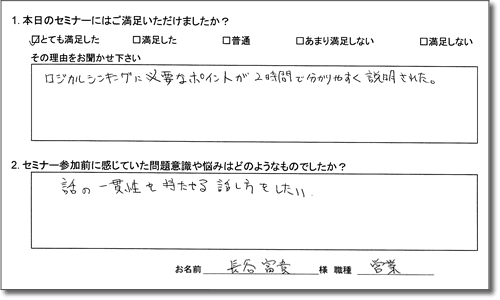 1. 本日のセミナーにはご満足いただけましたか？
☑とても満足した　□満足した　□普通　□あまり満足しない　□満足しない
その理由をお聞かせ下さい
ロジカルシンキングに必要なポイントが2時間で分かりやすく説明された。
2. セミナー参加前に感じていた問題意識や悩みはどのようなものでしたか？
話の一貫性を持たせる話し方をしたい
お名前　長谷富貴　様　職種　営業